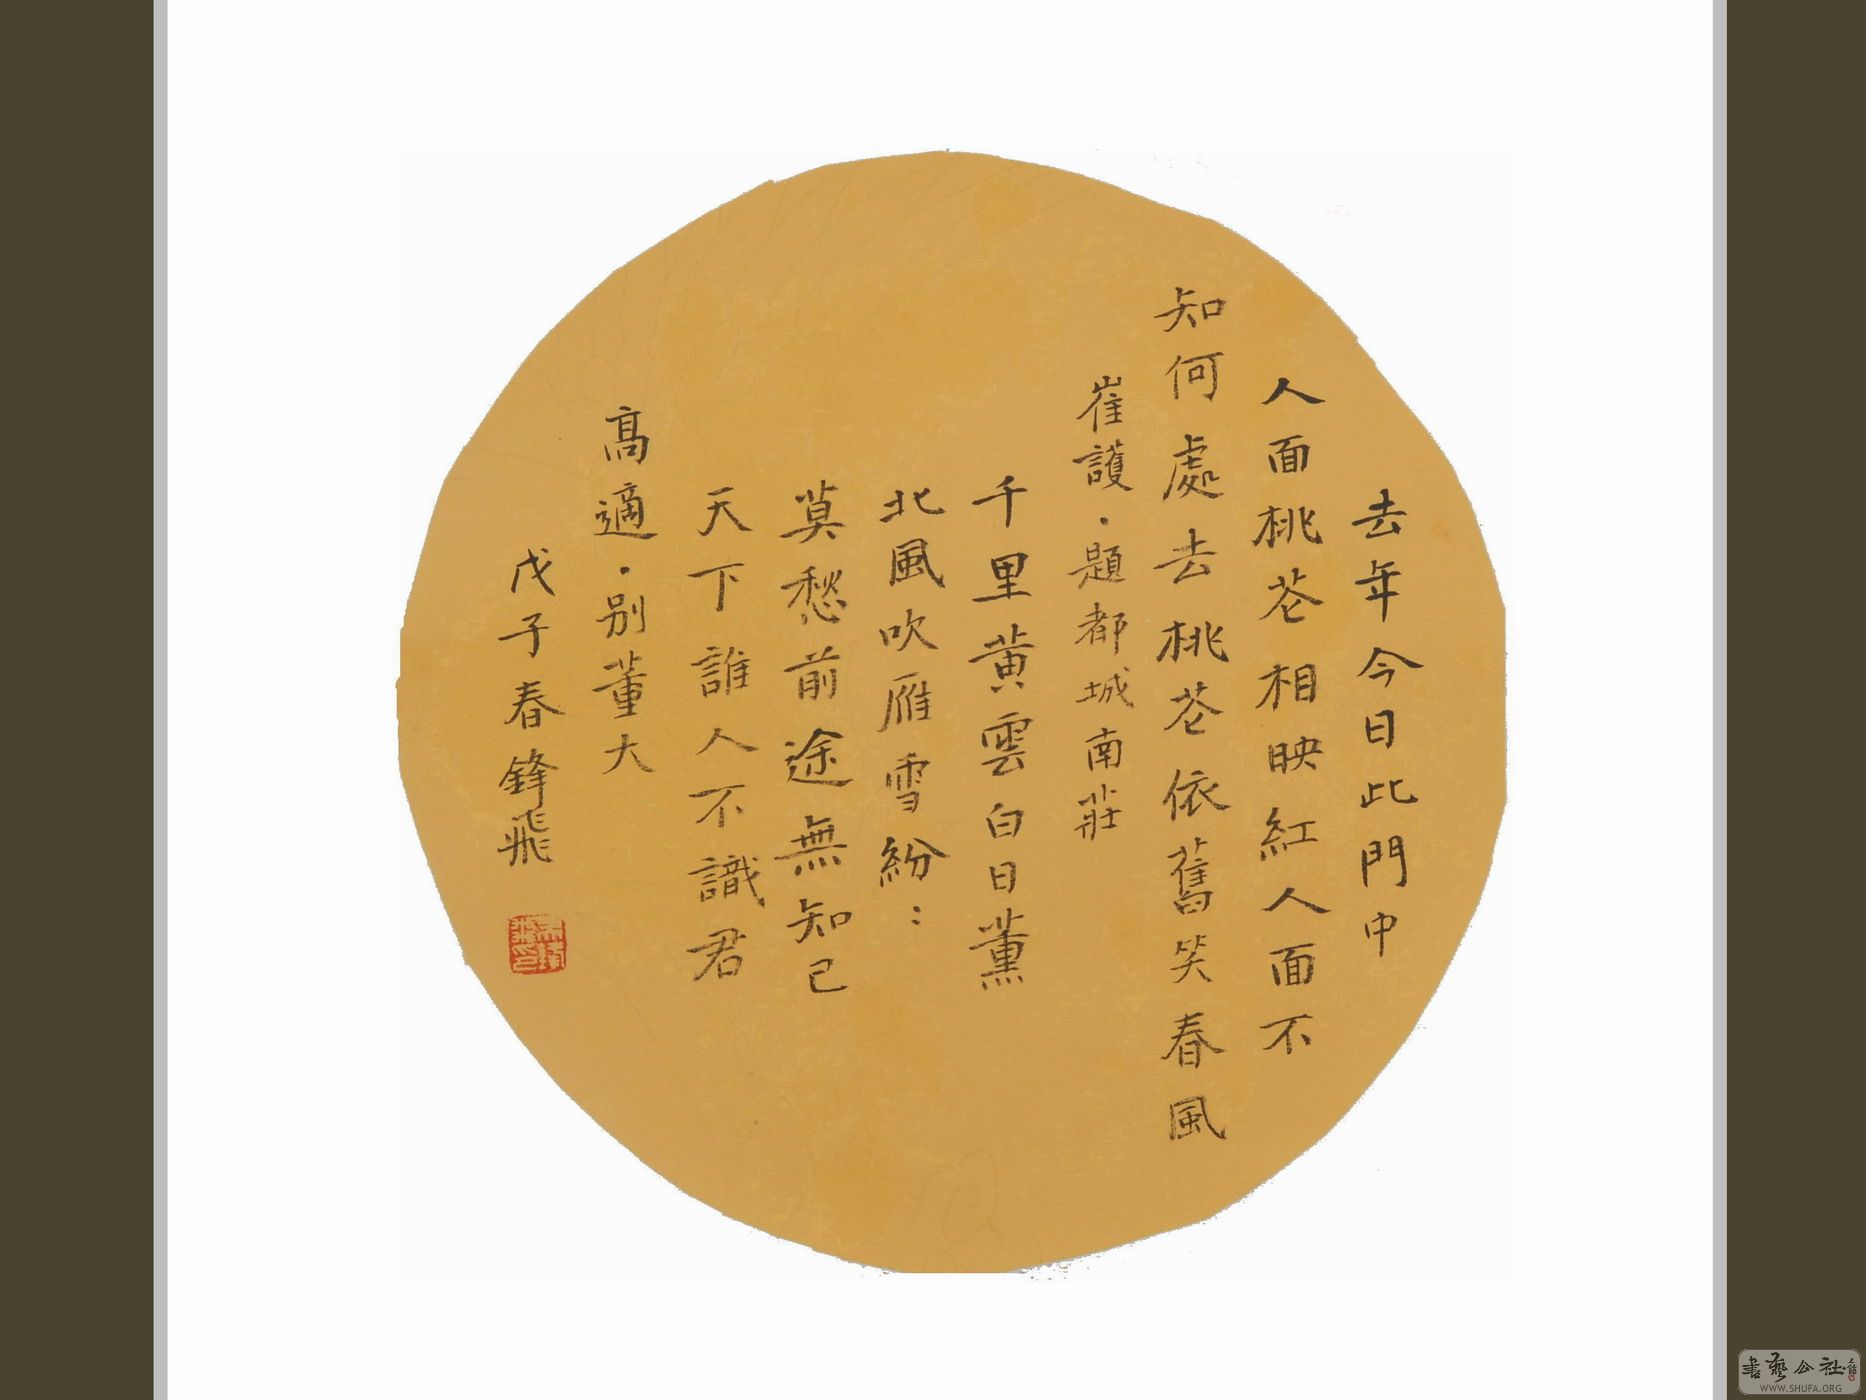 去年今日此門中
人面桃花相映紅人面不
知何處去桃花依舊笑春風
崔護·題都城南莊
千里黄雲白日薰
北風吹雁雪紛：
莫愁前途無知己
天下誰人不識君
高適·别董大
戊子春鋒飛
書藝公社
WWW.SHUFA.ORG